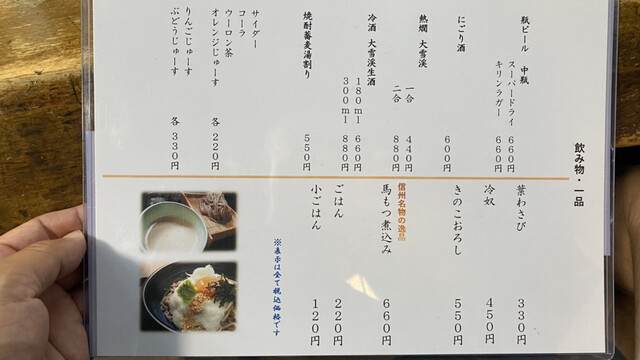 飲み物・一品
瓶ビール 中瓶
スーパードライ 660円
キリンラガー 660円
にごり酒 600円
熱燗 大雪渓
一合 440円
二合 880円
冷酒 大雪渓生酒
180ml 660円
300ml 880円
焼酎蕎麦湯割り 550円
サイダー
コーラ
ウーロン茶
オレンジじゅーす 各 220円
りんごじゅーす
ぶどうじゅーす 各 330円
葉わさび 330円
冷奴 450円
きのこおろし 550円
信州名物の逸品
馬もつ煮込み 660円
ごはん 220円
小ごはん 120円
※表示は全て税込価格です